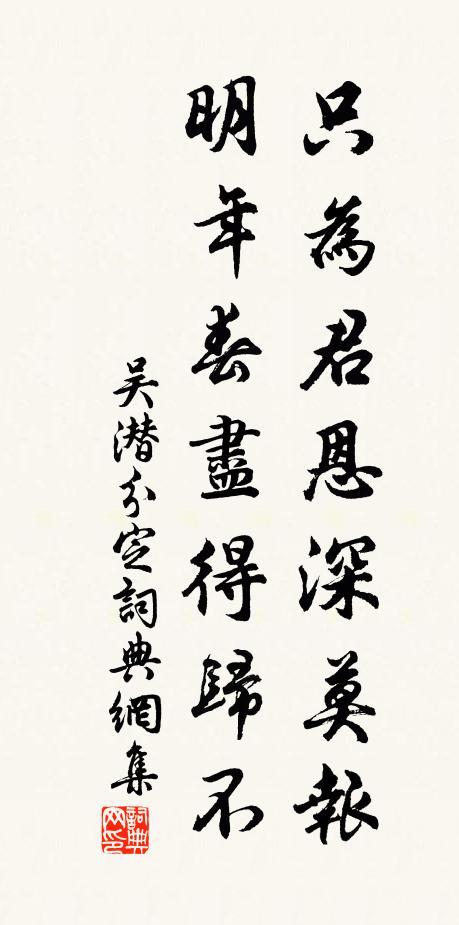 只為君恩深莫報
明年春盡得歸不
吴潜分定詞典網集
詞典网印